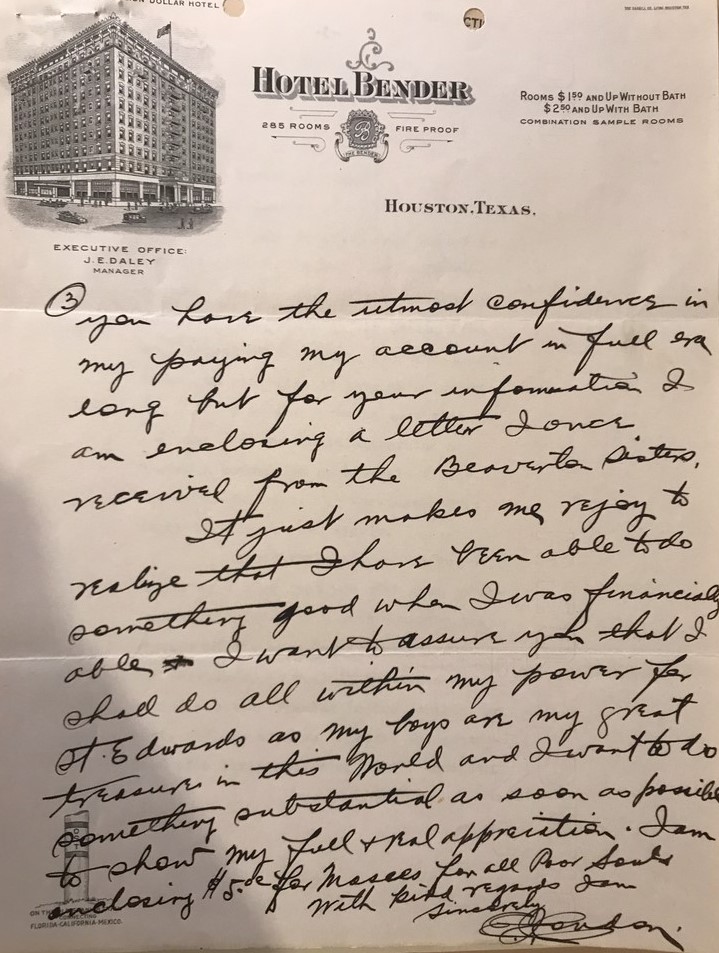 DOLLAR HOTEL
CTI
HOTEL BENDER
285 ROOMS FIRE PROOF
B
THE BENDER
ROOMS $1.50 AND UP WITHOUT BATH
$2.50 AND UP WITH BATH
COMBINATION SAMPLE ROOMS
HOUSTON, TEXAS.
EXECUTIVE OFFICE:
J. E. DALEY
MANAGER
3
you have the utmost confidence in
my paying my account in full era
long but for your information I
am enclosing a letter I once
received from the Beaverton Sisters.
It just makes me rejoy to
realize that I have been able to do
something good when I was financially
able I want to assure you that I
shall do all within my power for
St. Edwards as my boys are my great
treasures in this World and I want to do
something substantial as soon as possible
to show my full + real appreciation. I am
enclosing $5.00 for Masses for all Poor Souls
With kind regards I am
Sincerely
ON THE
CONNECTING
FLORIDA-CALIFORNIA-MEXICO.